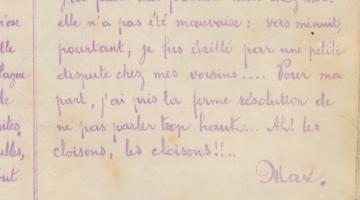 elle n'a pas été mauvaise : vers minuit,
pourtant, je fus éveillé par une petite
dispute chez mes voisins.... Pour ma
part, j'ai pris la ferme résolution de
ne pas parler trop haut... Ah! les
cloisons, les cloisons!!..
Max.